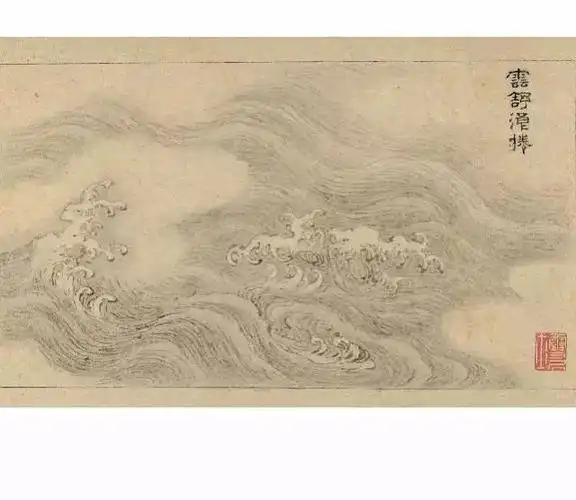 雲舒浪捲